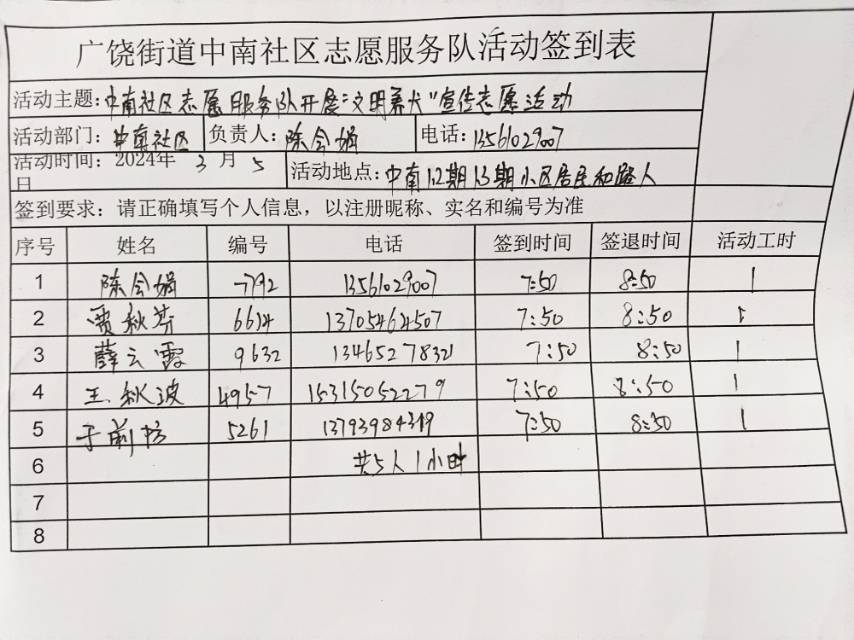 广饶街道中南社区志愿服务队活动签到表
活动主题:中南社区志愿服务队开展"文明养犬"宣传志愿活动
活动部门:中南社区 负责人:陈会娟 电话:13561029007
活动时间:2024年 3 月 5 日 活动地点:中南12期13期小区居民和路人
签到要求:请正确填写个人信息,以注册昵称、实名和编号为准
序号 姓名 编号 电话 签到时间 签退时间 活动工时
1 陈会娟 7792 13561029007 7:50 8:50 1
2 贾秋芬 6614 13705464507 7:50 8:50 1
3 薛云霞 9632 13465278321 7:50 8:50 1
4 王秋波 4957 15315052279 7:50 8:50 1
5 于前 5261 13793984319 7:50 8:50 1
6 共5人1小时
7
8